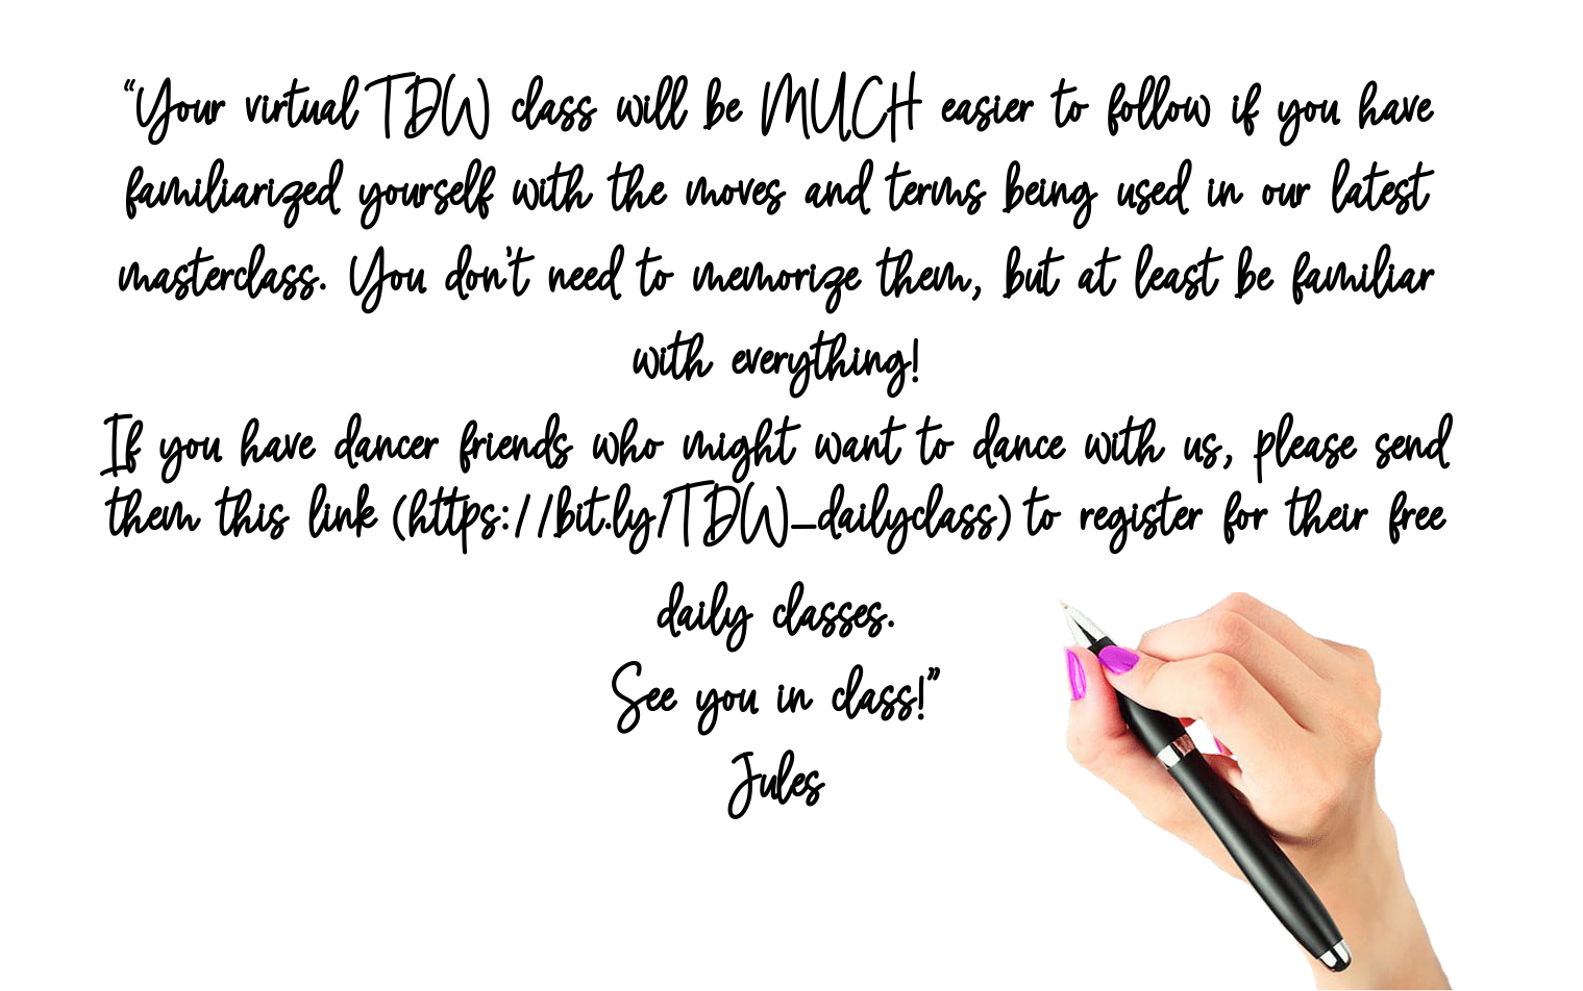 “Your virtual TDW class will be MUCH easier to follow if you have
familiarized yourself with the moves and terms being used in our latest
masterclass. You don't need to memorize them, but at least be familiar
with everything!
If you have dancer friends who might want to dance with us, please send
them this link (https://bit.ly/TDW_dailyclass) to register for their free
daily classes.
See you in class!”
Jules